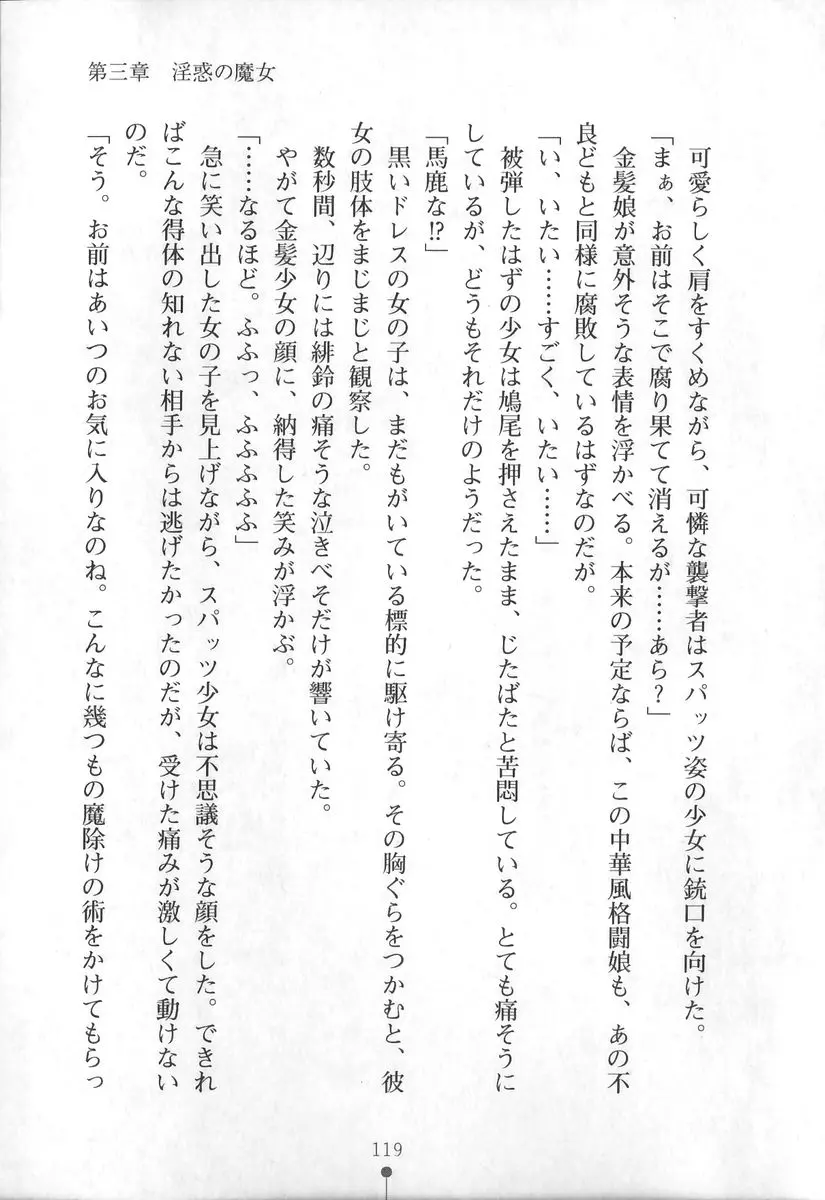 第三章　淫惑の魔女
可愛らしく肩をすくめながら、可憐な襲撃者はスパッツ姿の少女に銃口を向けた。
「まぁ、お前はそこで腐り果てて消えるが……あら？」
金髪娘が意外そうな表情を浮かべる。本来の予定ならば、この中華風格闘娘も、あの不
良どもと同様に腐敗しているはずなのだが。
「い、いたい……すごく、いたい……」
被弾したはずの少女は鳩尾を押さえたまま、じたばたと苦悶している。とても痛そうに
しているが、どうもそれだけのようだった。
「馬鹿な⁉」
黒いドレスの女の子は、まだもがいている標的に駆け寄る。その胸ぐらをつかむと、彼
女の肢体をまじまじと観察した。
数秒間、辺りには緋鈴の痛そうな泣きべそだけが響いていた。
やがて金髪少女の顔に、納得した笑みが浮かぶ。
「……なるほど。ふふっ、ふふふふふ」
急に笑い出した女の子を見上げながら、スパッツ少女は不思議そうな顔をした。できれ
ばこんな得体の知れない相手からは逃げたかったのだが、受けた痛みが激しくて動けない
のだ。
「そう。お前はあいつのお気に入りなのね。こんなに幾つもの魔除けの術をかけてもらっ
119